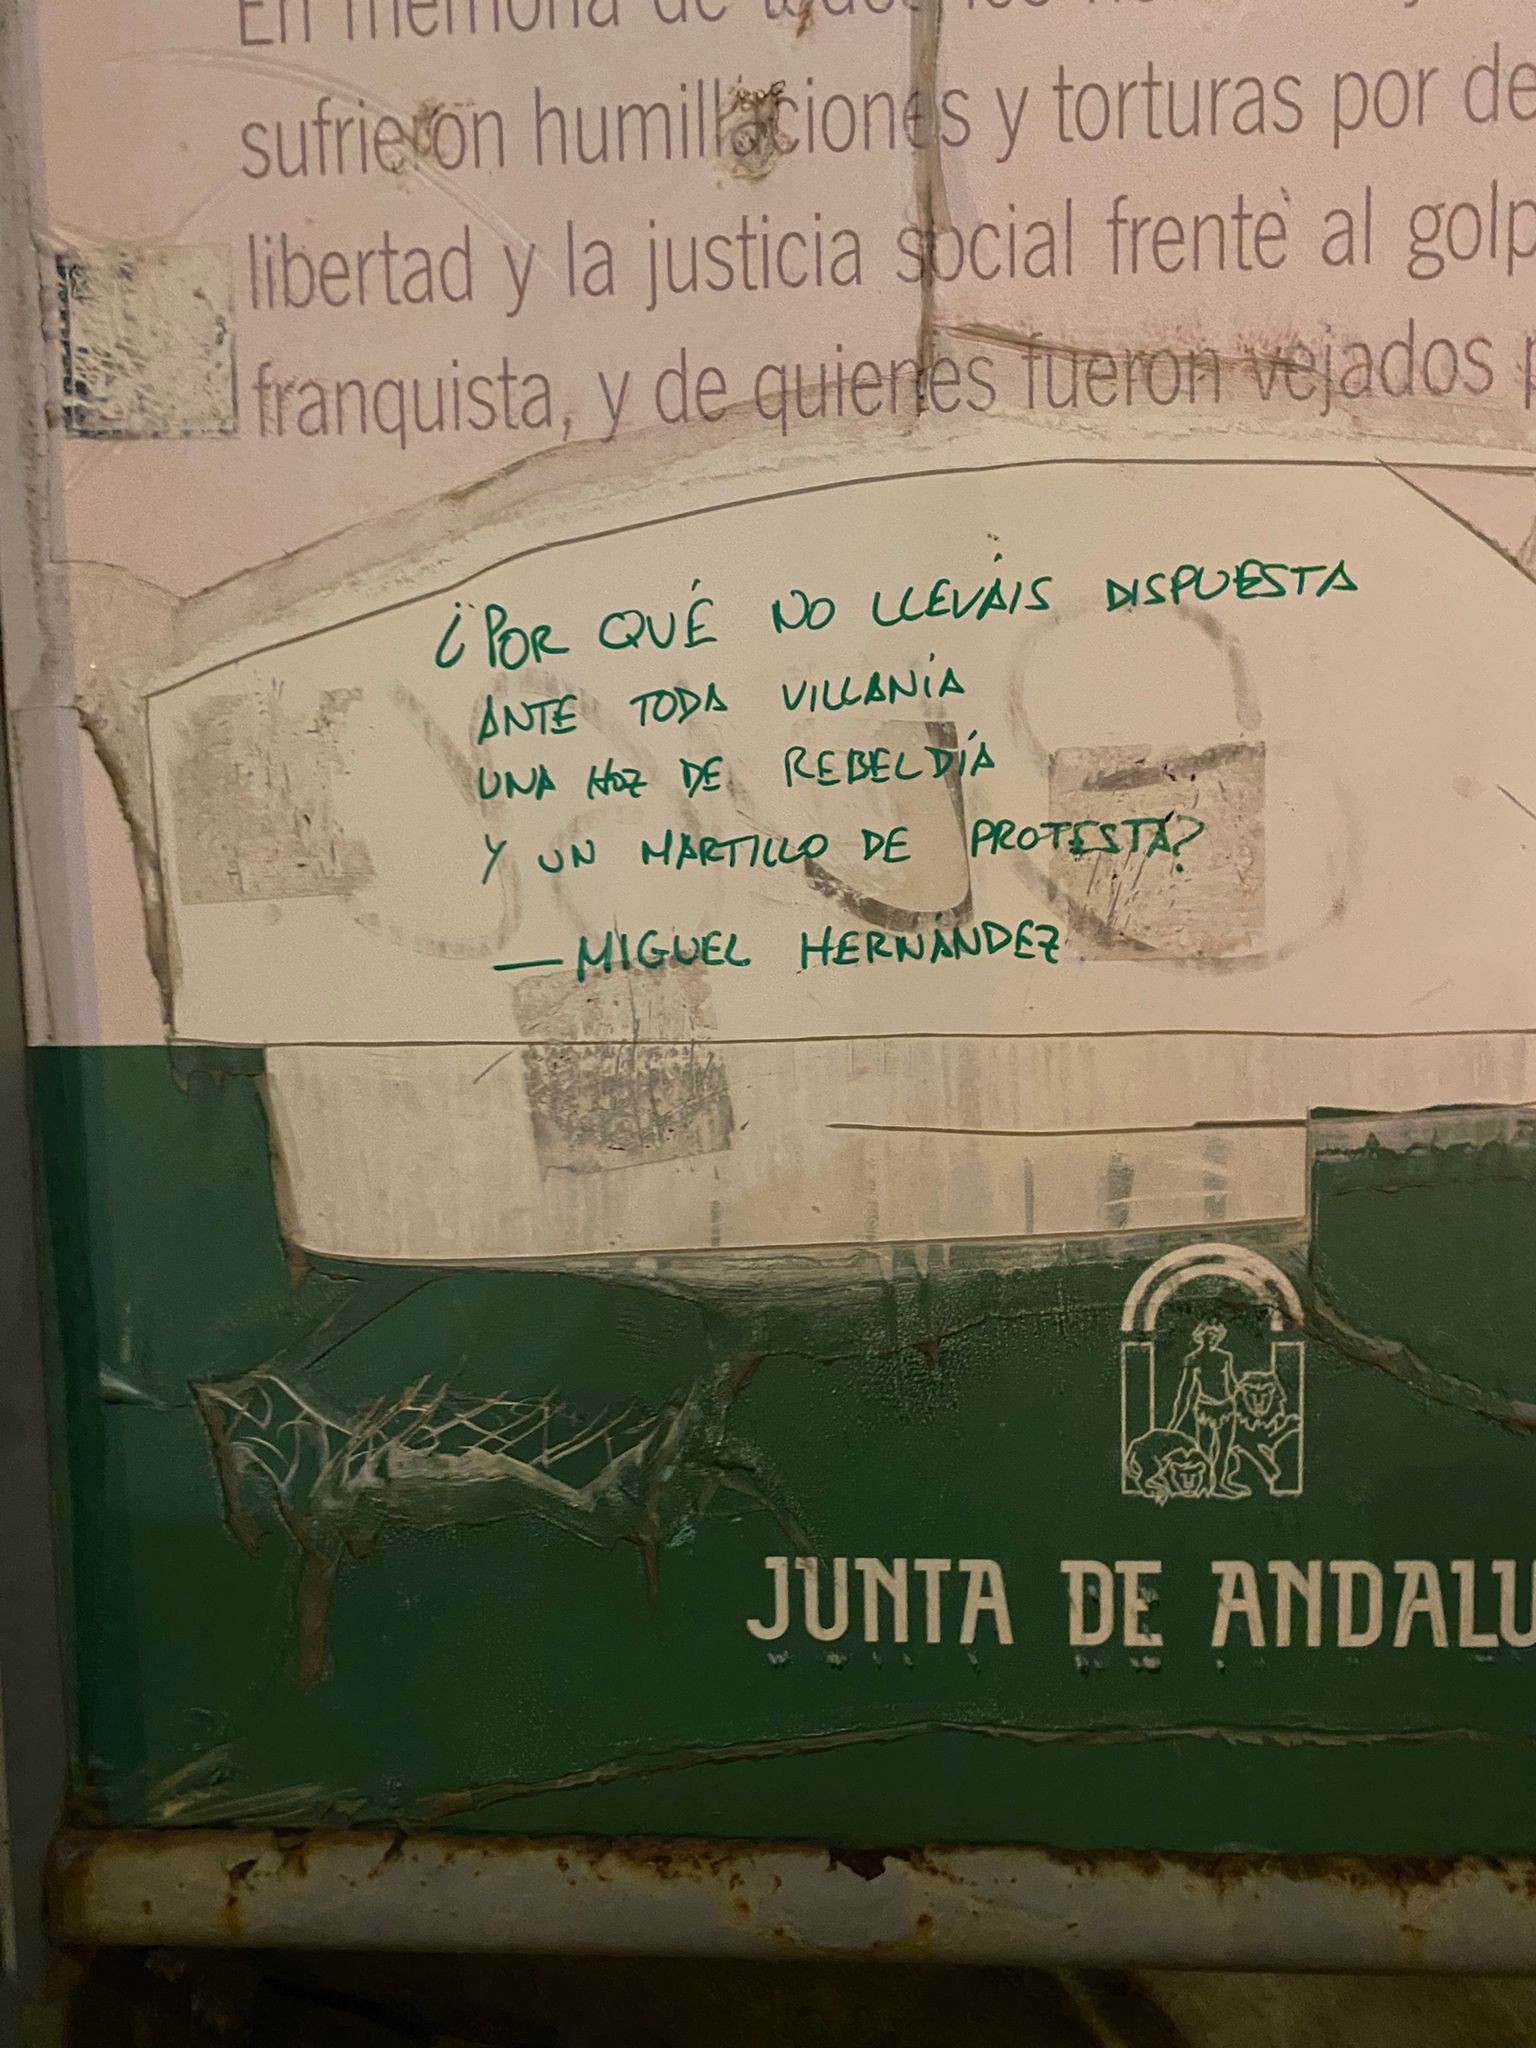 En memoria de
sufrieron humillaciones y torturas por de
libertad y la justicia social frente al golp
franquista, y de quienes fueron vejados p
¿POR QUÉ NO LLEVÁIS DISPUESTA
ANTE TODA VILLANÍA
UNA HOZ DE REBELDÍA
Y UN MARTILLO DE PROTESTA?
—MIGUEL HERNÁNDEZ
JUNTA DE ANDALU